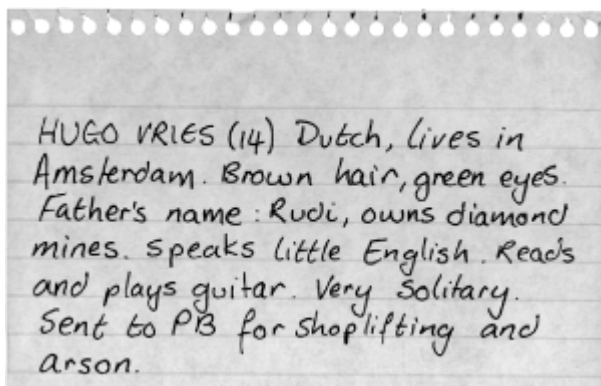 HUGO VRIES (14) Dutch, lives in
Amsterdam. Brown hair, green eyes.
Father's name: Rudi, owns diamond
mines. Speaks little English. Reads
and plays guitar. Very Solitary.
Sent to PB for shoplifting and
arson.